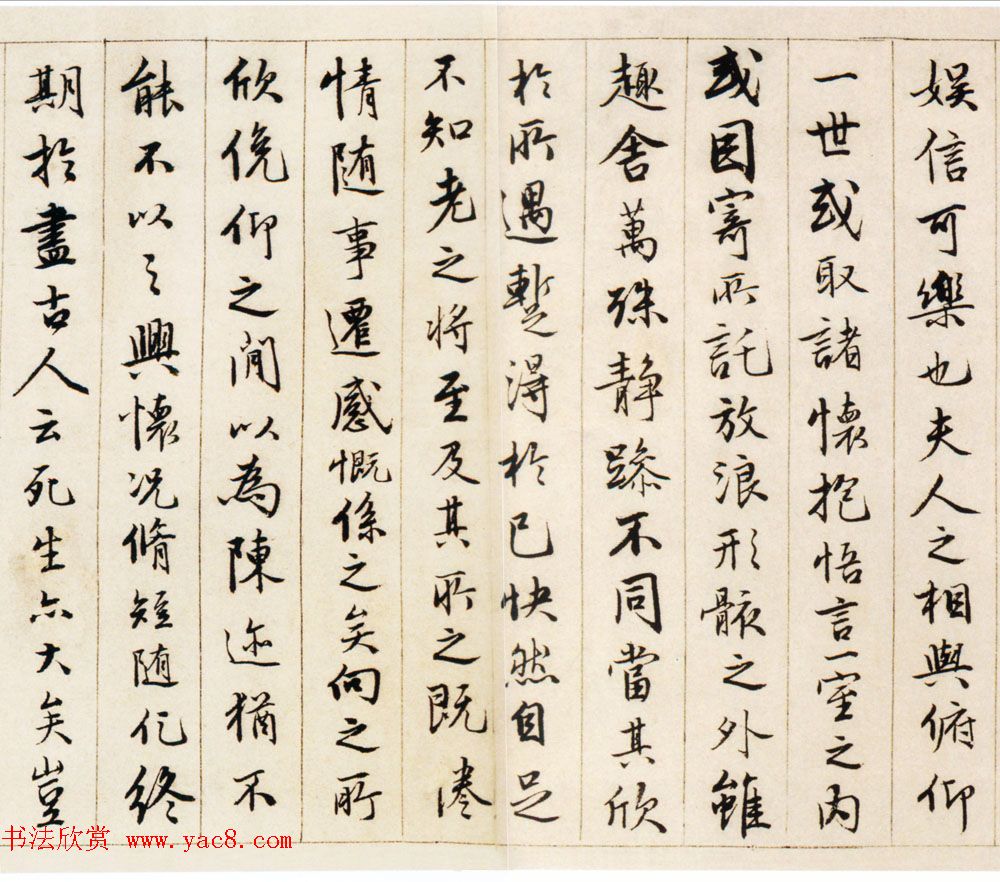 娱信可樂也夫人之相與俯仰
一世或取諸懷抱悟言一室之内
或因寄所託放浪形骸之外雖
趣舎萬殊静躁不同當其欣
於所遇暫得於己快然自足
不知老之将至及其所之既惓
情随事遷感慨係之矣向之所
欣俛仰之間以為陳迹猶不
能不以之興懷况脩短随化終
期於盡古人云死生亦大矣豈
书法欣赏 www.yac8.com